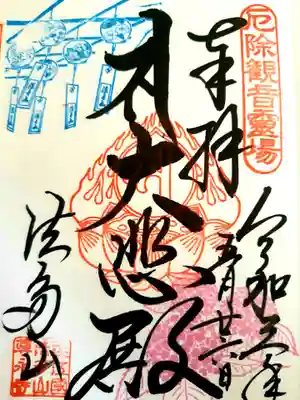 厄除觀音靈場
奉拝
大悲殿
令和
五月廿六日
法多山